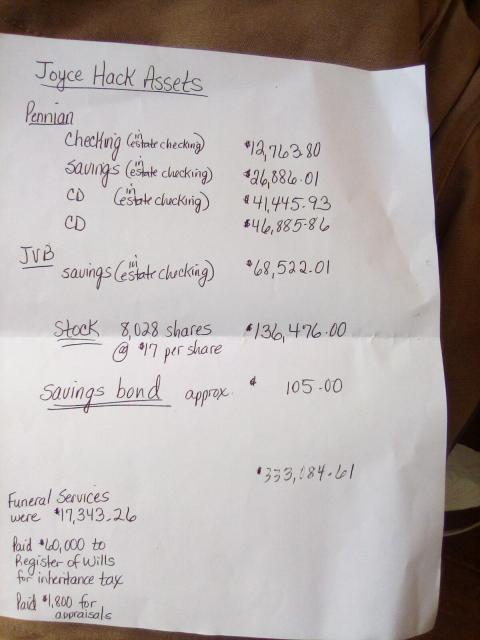 Joyce Hack Assets
Pennian
Checking (in estate checking) $12,763.80
Savings (in estate checking) $26,886.01
CD (in estate checking) $41,445.93
CD $46,885.86
JVB
savings (in estate checking) $68,522.01
Stock 8,028 shares $136,476.00
@ $17 per share
Savings bond approx. $ 105.00
$333,084.61
Funeral Services
were $17,343.26
Paid $60,000 to
Register of Wills
for inheritance tax
Paid $1,800 for
appraisals